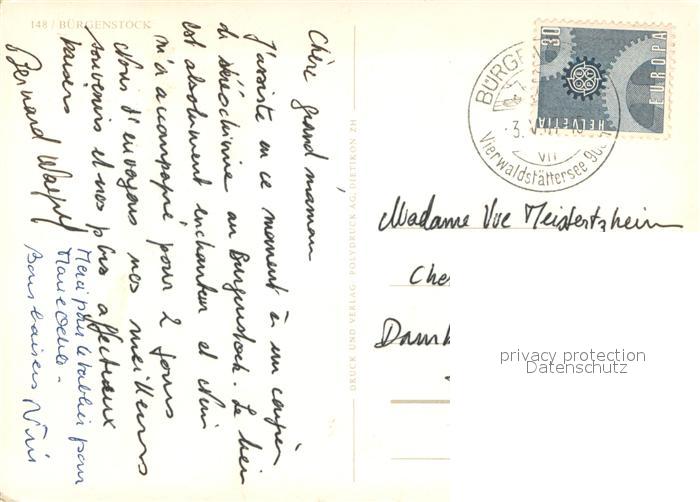 148 / BÜRGENSTOCK
Chère grand maman
J'assiste en ce moment à un congrès
de stéréochimie au Bürgenstock. Le lieu
est absolument enchanteur et Nini
m'a accompagné pour 2 jours
Nous t'envoyons nos meilleurs
souvenirs et nos plus affectueux
baisers
Bernard
Merci pour le tablier pour
Marie Odile.
Bons baisers Nini
DRUCK UND VERLAG POLYDRUCK AG, DIETIKON ZH
BÜRGEN
3. V
VII
Vierwaldstättersee 900
30
EUROPA
HELVETIA
Madame Vve Meistertzheim
Che
Dam
privacy protection
Datenschutz